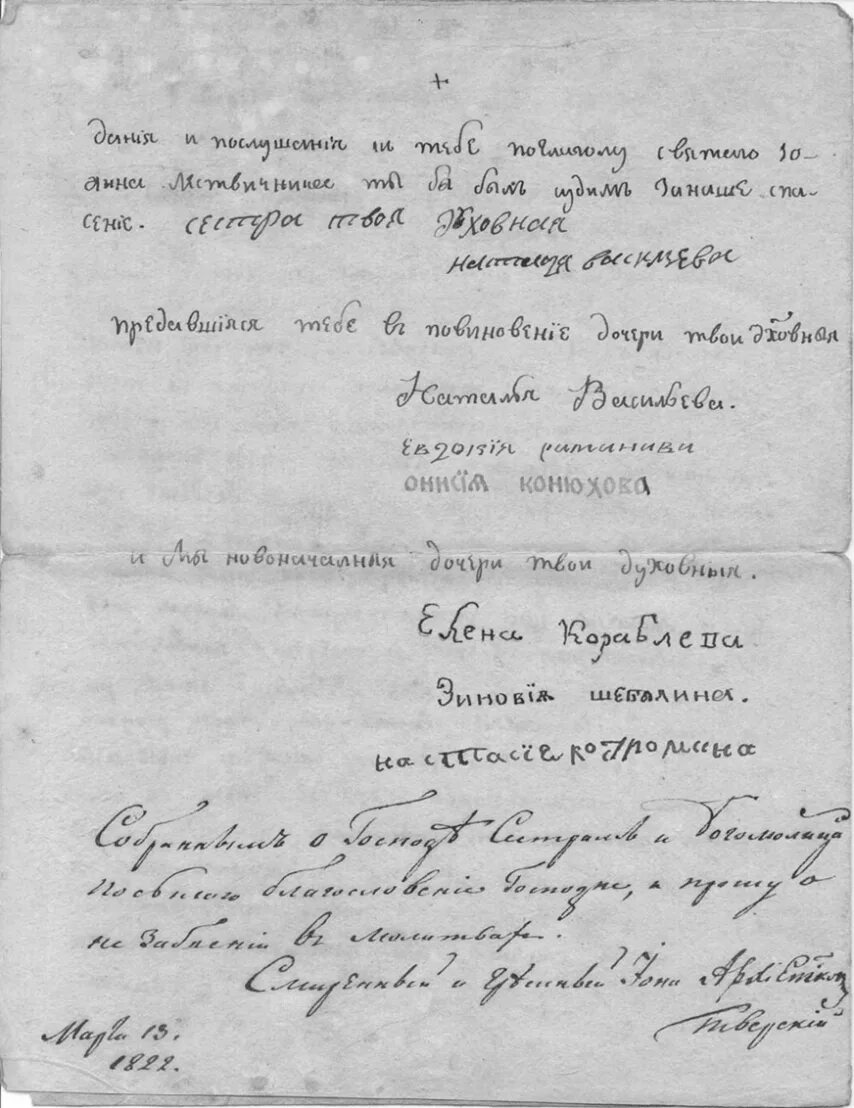 +
дания и послушания и тебе поглаголу святаго Іо-
анна Лѣствичника ты ба былъ судимъ Занаше спа-
сеніе. сестра твоя Духовная
настасия василева
предавшіяся тебе въ повиновеніе дочери твои дховныя
Наталья Васильева.
Евдокія
ониСїѧ конюхова
и Мы новоначалныя дочери твои духовныя.
Елена Кораблева
Зиновїя шебалина.
настасіе костромина
Собраннымъ о Господѣ Систрамъ и богомолица
Посылаю благословеніе Господне, и прошу о
не Забвеніи въ молитвахъ.
Смиренный и грѣшный Іона Архіепископ
Тверскій
Марта 13.
1822.